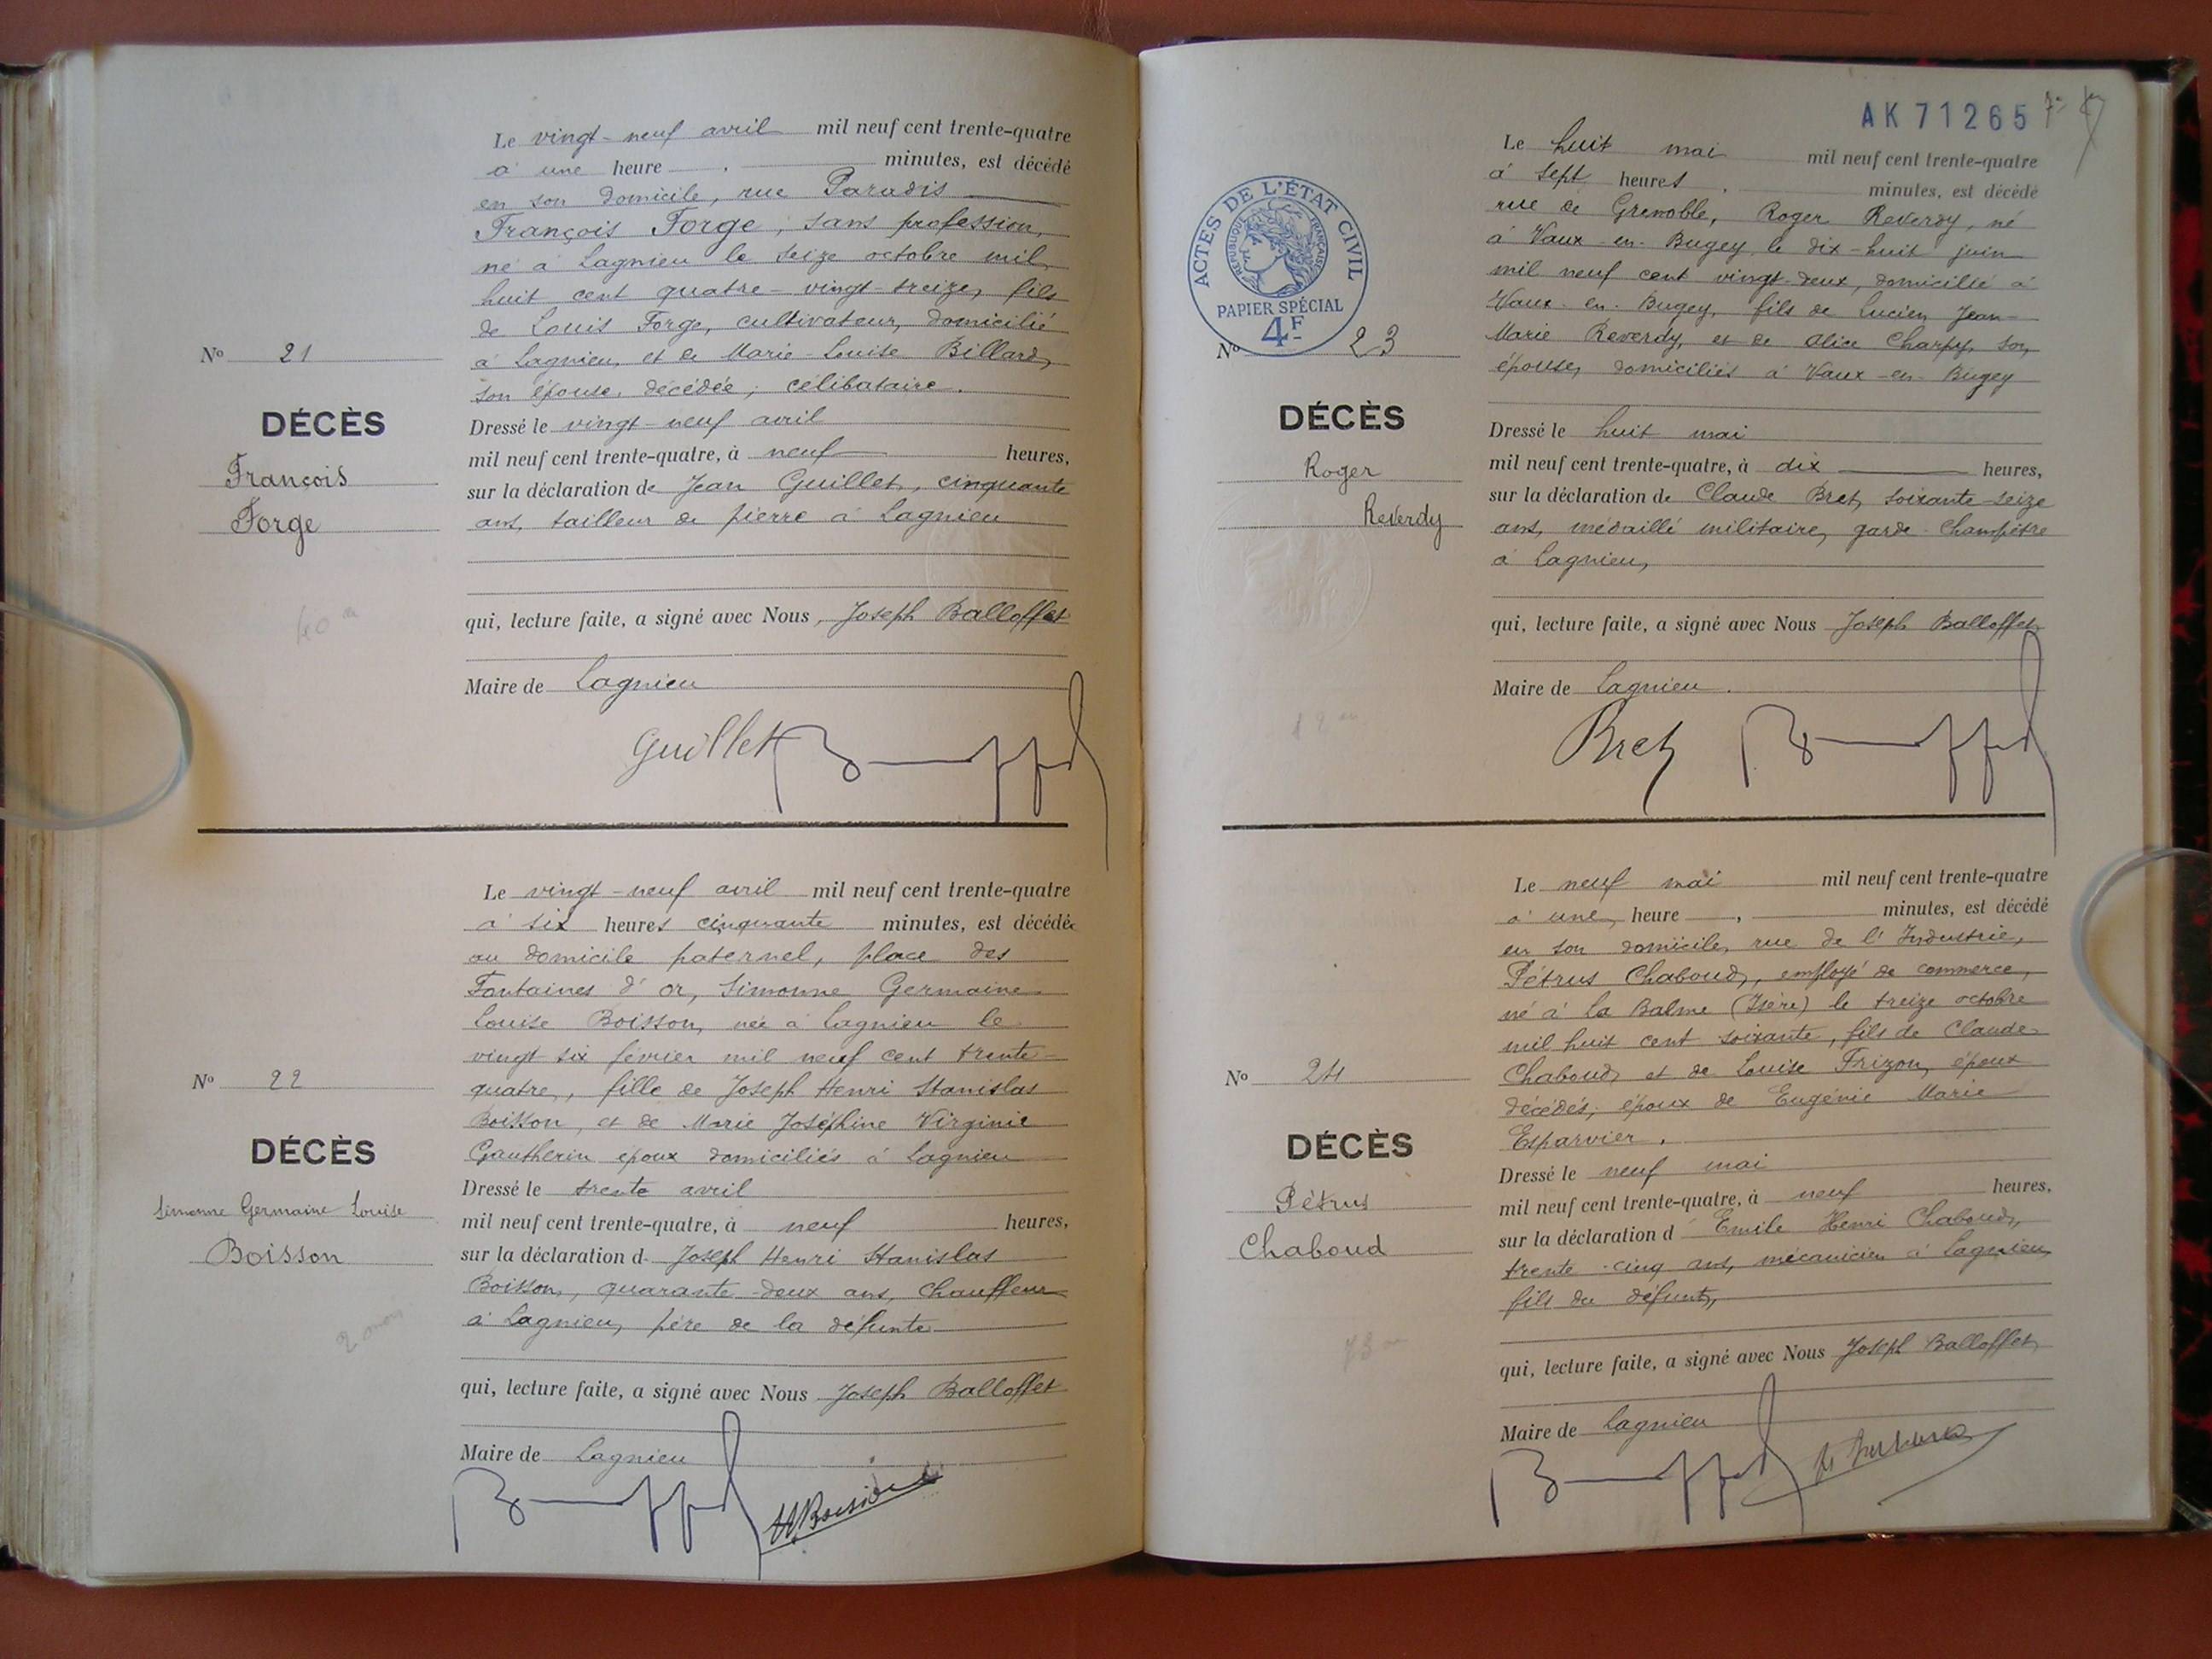 Le vingt-neuf avril mil neuf cent trente-quatre
à une heure minutes, est décédé
en son domicile, rue Paradis
François Forge, sans profession,
né à Lagnieu le seize octobre mil
huit cent quatre-vingt-treize, fils
de Louis Forge, cultivateur, domicilié
à Lagnieu, et de Marie-Louise Billard,
son épouse, décédée, célibataire.
N° 21
DÉCÈS
François
Forge
Dressé le vingt-neuf avril
mil neuf cent trente-quatre, à neuf heures,
sur la déclaration de Jean Guillet, cinquante
ans, tailleur de pierre à Lagnieu
40 a
qui, lecture faite, a signé avec Nous, Joseph Balloffet
Maire de Lagnieu
Guillet
Le vingt-neuf avril mil neuf cent trente-quatre
à six heures cinquante minutes, est décédée
au domicile paternel, place des
Fontaines d'or, Simonne Germaine
Louise Boisson, née à Lagnieu le
vingt six février mil neuf cent trente-
quatre, fille de Joseph Henri Stanislas
Boisson, et de Marie Joséphine Virginie
Gautherin époux domiciliés à Lagnieu
N° 22
DÉCÈS
Simonne Germaine Louise
Boisson
Dressé le trente avril
mil neuf cent trente-quatre, à neuf heures,
sur la déclaration d. Joseph Henri Stanislas
Boisson, quarante-deux ans, chauffeur
à Lagnieu, père de la défunte
2 mois
qui, lecture faite, a signé avec Nous Joseph Balloffet
Maire de Lagnieu
HBoisson
AK 71265
ACTES DE L'ÉTAT CIVIL
RÉPUBLIQUE FRANÇAISE
PAPIER SPÉCIAL
4F
Le huit mai mil neuf cent trente-quatre
à sept heures, minutes, est décédé
rue de Grenoble, Roger Reverdy, né
à Vaux-en-Bugey le dix-huit juin
mil neuf cent vingt-deux, domicilié à
Vaux-en-Bugey, fils de Lucien Jean-
Marie Reverdy, et de Alice Charpy, son
épouse, domiciliés à Vaux-en-Bugey
N° 23
DÉCÈS
Roger
Reverdy
Dressé le huit mai
mil neuf cent trente-quatre, à dix heures,
sur la déclaration de Claude Bret, soixante-seize
ans, médaillé militaire, garde-champêtre
à Lagnieu,
qui, lecture faite, a signé avec Nous Joseph Balloffet
Maire de Lagnieu.
Bret
Le neuf mai mil neuf cent trente-quatre
à une heure, minutes, est décédé
en son domicile, rue de l'Industrie,
Pétrus Chaboud, employé de commerce,
né à La Balme (Isère) le treize octobre
mil huit cent soixante, fils de Claude
Chaboud et de Louise Frizon, époux
décédés; époux de Eugénie Marie
Esparvier.
N° 24
DÉCÈS
Pétrus
Chaboud
Dressé le neuf mai
mil neuf cent trente-quatre, à neuf heures,
sur la déclaration d' Emile Henri Chaboud,
trente-cinq ans, mécanicien à Lagnieu,
fils du défunt,
73
qui, lecture faite, a signé avec Nous Joseph Balloffet
Maire de Lagnieu